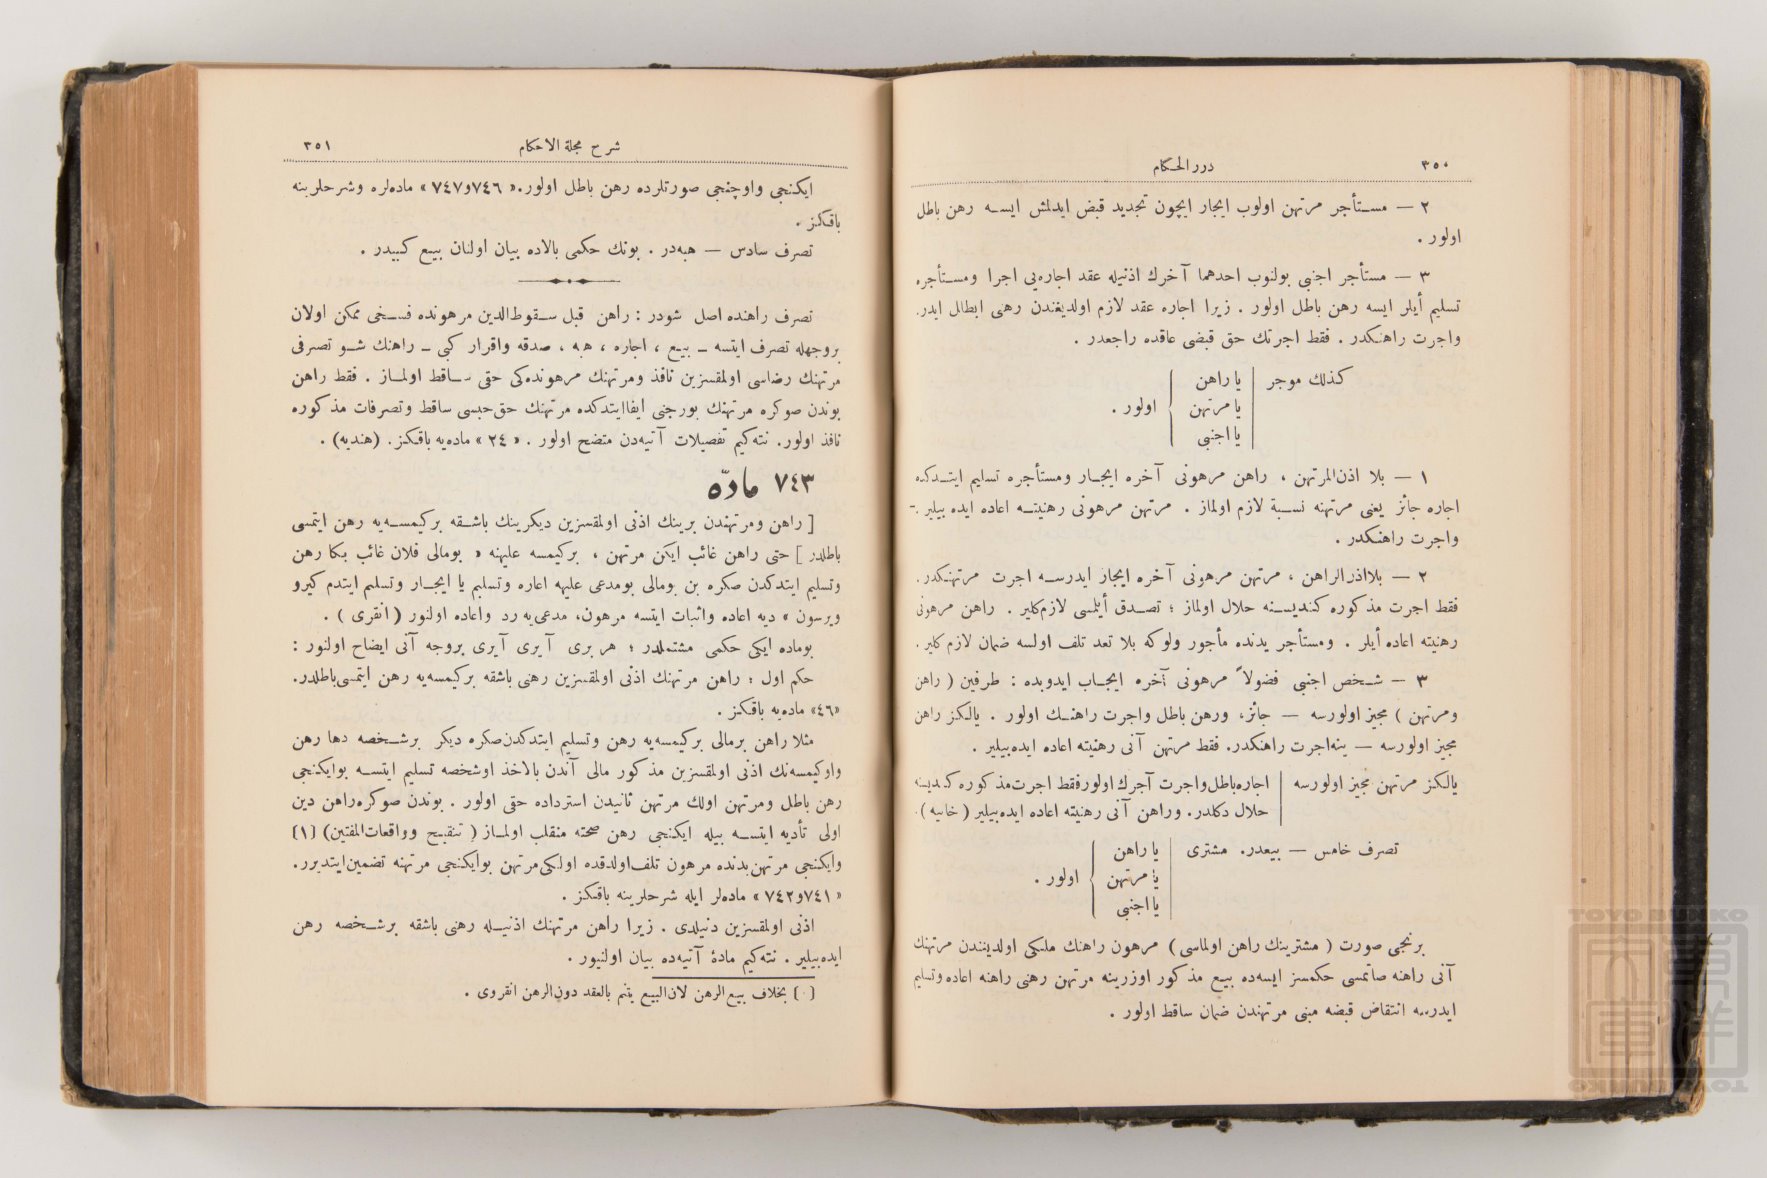 ٣٥٠
درر الحكام
٢ — مستأجر مرتهن اولوب ايجار ايچون تجديد قبض ايدلمش ايسه رهن باطل
اولور .
٣ — مستأجر اجنبى بولنوب احدهما آخرك اذنيله عقد اجاره‌يى اجرا ومستأجره
تسليم أيلر ايسه رهن باطل اولور . زيرا اجاره عقد لازم اولديغندن رهنى ابطال ايدر.
واجرت راهنكدر . فقط اجرتك حق قبضى عاقده راجعدر .
كذلك موجر
يا راهن
يا مرتهن
يا اجنبى
اولور .
١ — بلا اذن‌المرتهن ، راهن مرهونى آخره ايجار ومستأجره تسليم ايتدكده
اجاره جائز يعنى مرتهنه نسبة لازم اولماز . مرتهن مرهونى رهنيته اعاده ايده بيلير .-
واجرت راهنكدر .
٢ — بلااذن‌الراهن ، مرتهن مرهونى آخره ايجار ايدرسه اجرت مرتهنكدر.
فقط اجرت مذكوره كنديسنه حلال اولماز ؛ تصدق أيلمسى لازم‌كلير . راهن مرهونى
رهنيته اعاده أيلر . ومستأجر يدنده مأجور ولوكه بلا تعد تلف اولسه ضمان لازم كلير.
٣ — شخص اجنبى فضولاً مرهونى آخره ايجاب ايدوبده : طرفين ( راهن
ومرتهن ) مجيز اولورسه — جائز، ورهن باطل واجرت راهنك اولور . يالكز راهن
مجيز اولورسه — ينه‌اجرت راهنكدر. فقط مرتهن آنى رهنيته اعاده ايده‌بيلير .
يالكز مرتهن مجيز اولورسه
اجاره‌باطل‌واجرت آجرك اولورفقط اجرت‌مذكوره كنديسنه
حلال دكلدر. وراهن آنى رهنيته اعاده ايده‌بيلير ( خانيه ).
تصرف خامس — بيعدر. مشترى
يا راهن
يا مرتهن
يا اجنبى
اولور .
برنجى صورت ( مشترينك راهن اولماسى ) مرهون راهنك ملكى اولديغندن مرتهنك
آنى راهنه صاتمسى حكمسز ايسه‌ده بيع مذكور اوزرينه مرتهن رهنى راهنه اعاده وتسليم
ايدرسه انتقاض قبضه مبنى مرتهندن ضمان ساقط اولور .
شرح مجلة الاحكام
٣٥١
ايكنجى واوچنجى صورتلرده رهن باطل اولور.« ٧٤٦و٧٤٧ » ماده‌لره وشرحلرينه
باقكز .
تصرف سادس — هبه‌در . بونك حكمى بالاده بيان اولنان بيع كبيدر .
تصرف راهنده اصل شودر : راهن قبل سقوط‌الدين مرهونده فسخى ممكن اولان
بروجهله تصرف ايتسه ــ بيع ، اجاره ، هبه ، صدقه واقرار كبى ــ راهنك شو تصرفى
مرتهنك رضاسى اولمقسزين نافذ ومرتهنك مرهونده‌كى حقى ساقط اولماز . فقط راهن
بوندن صوكره مرتهنك بورجنى ايفاايتدكده مرتهنك حق‌حبسى ساقط وتصرفات مذكوره
نافذ اولور. نته‌كيم تفصيلات آتيه‌دن متضح اولور . « ٢٤ » ماده‌يه باقكز. (هنديه) .
٧٤٣ مادّه
[ راهن ومرتهندن برينك اذنى اولمقسزين ديكرينك باشقه بركيمسه‌يه رهن ايتمسى
باطلدر ] حتى راهن غائب ايكن مرتهن ، بركيمسه عليهنه « بومالى فلان غائب بكا رهن
وتسليم ايتدكدن صكره بن بومالى بومدعى عليهه اعاره وتسليم يا ايجار وتسليم ايتدم كيرو
ويرسون » ديه اعاده واثبات ايتسه مرهون، مدعى‌يه رد واعاده اولنور ( انقرى ) .
بوماده ايكى حكمى مشتملدر ؛ هربرى آيرى آيرى بروجه آتى ايضاح اولنور :
حكم اول : راهن مرتهنك اذنى اولمقسزين رهنى باشقه بركيمسه‌يه رهن ايتمسى‌باطلدر.
«٤٦» ماده‌يه باقكز .
مثلا راهن برمالى بركيمسه‌يه رهن وتسليم ايتدكدن‌صكره ديكر برشخصه دها رهن
واوكيمسه‌نك اذنى اولمقسزين مذكور مالى آندن بالاخذ اوشخصه تسليم ايتسه بوايكنجى
رهن باطل ومرتهن اولك مرتهن ثانيدن استرداده حقى اولور . بوندن صوكره‌راهن دين
اولى تأديه ايتسه بيله ايكنجى رهن صحته منقلب اولماز ( تنقيح وواقعات‌المفتين) [١]
وايكنجى مرتهن‌يدنده مرهون تلف‌اولدقده اولكى‌مرتهن بوايكنجى مرتهنه تضمين‌ايتديرر.
« ٧٤١و٧٤٢ » ماده‌لر ايله شرحلرينه باقكز .
اذنى اولمقسزين دنيلدى . زيرا راهن مرتهنك اذنيله رهنى باشقه برشخصه رهن
ايده‌بيلير . نته‌كيم مادۀ آتيه‌ده بيان اولنيور .
[ ] بخلاف بيع‌الرهن لان‌البيع يتم بالعقد دون‌الرهن انقروى .